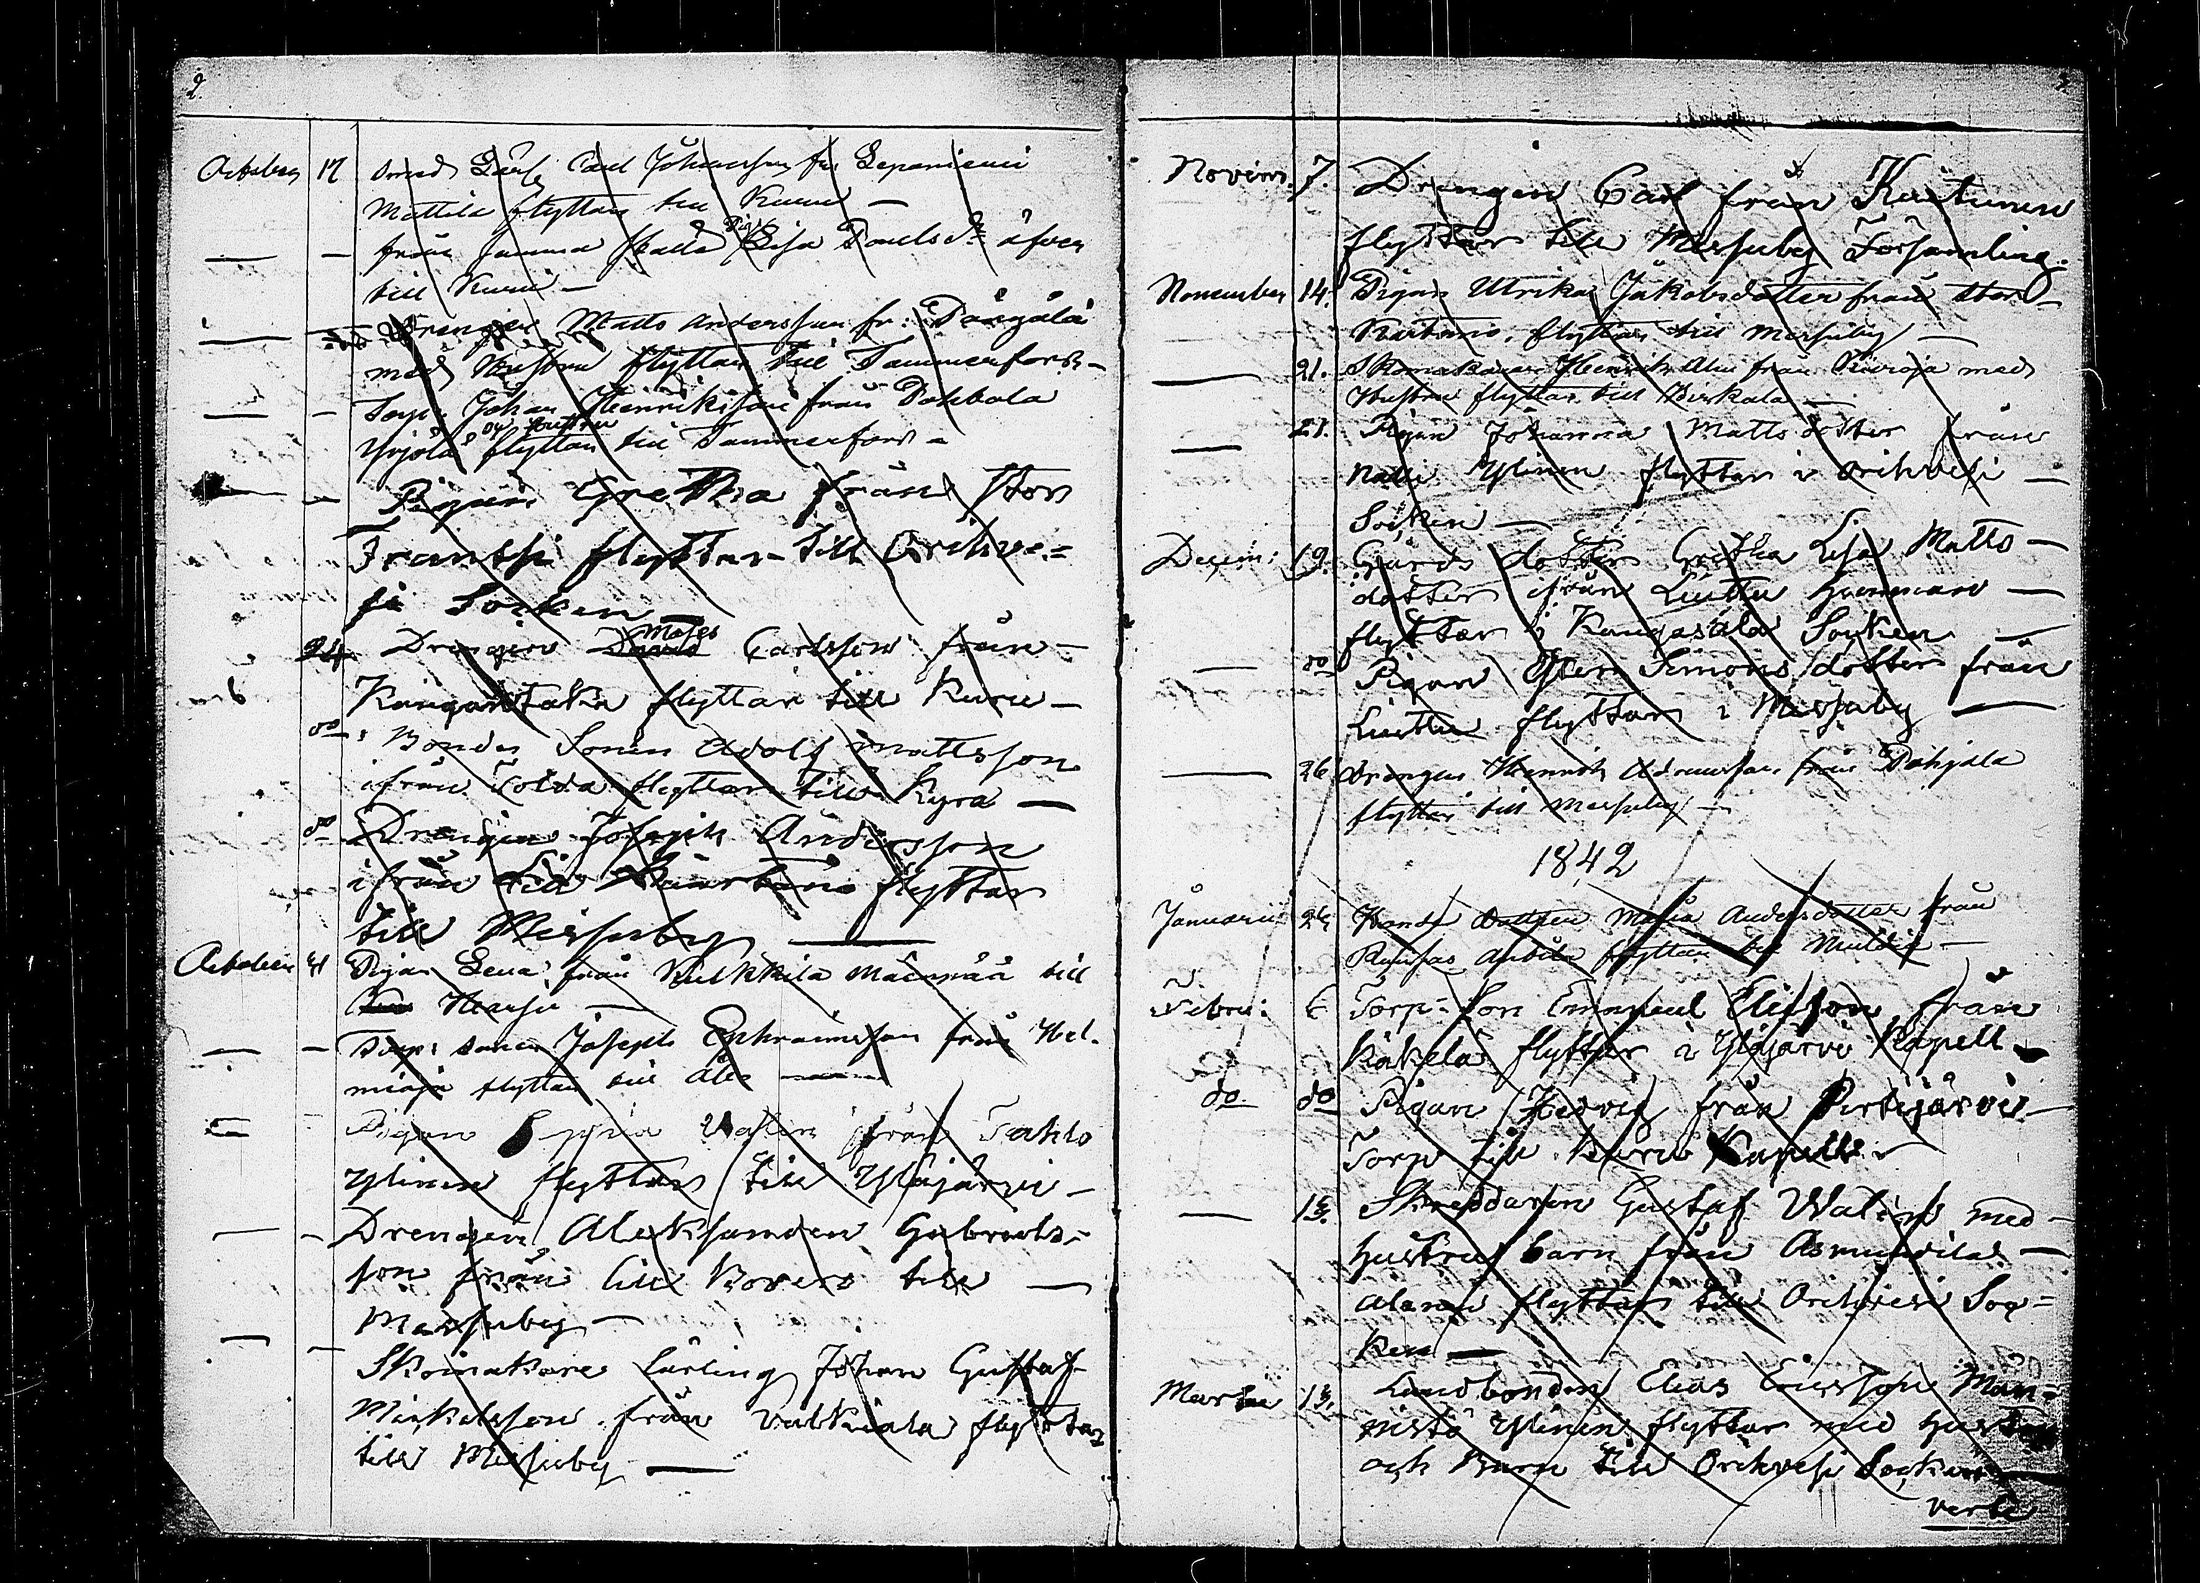 2.
October 17 Smed Lärl. Carl Johansson fr. Lepaniemi
Mattila flyttar till Kuru —
— — från samma ställe Pig. Lisa Paulsdr äfven
till Kuru —
— Drengen Matts Andersson fr: Pångälä
med Hustru flyttar till Tammerfors —
— — Torp. Johan Henriksson från Pohbola
Yrjölä och hustru flyttar till Tammerfors —
— — Pigan Gretha från Stor
Frantsi flyttar till Orihve=
si Socken —
24 Drengen David Moses Carlsson från —
Kangantaka flyttar till Kuru —
do: Bonde Sonen Adolf Mattsson
ifrån Tolda flyttar till Kyrö —
do Drengen Joseph Andersson
ifrån Lill Kärtano flyttar
till Messuby —
October 31 Pigan Lena från Kulkkila Mäenpää till
Hauho —
— — Torp: sonen Joseph Ephraimsson från Hel-
miöja flyttar till Åbo —
— — Pigan Sophia Valen från Takto
Ylinen flyttar till Ylöjärvi —
— — Drengen Aleksander Gabriels-
son från Lill Bovers till —
Messuby —
— — Skomakare Lärling Johan Gustaf
Mickelsson från Valkiala flyttar
till Messuby —
Novem: 7. Drengen Carl från Kurtunen
flyttar till Messuby Församling.
November 14. Pigan Ulrika Jakobsdotter från Stor —
Kartano, flyttar till Messuby —
— 21. Skomakaren Henrik Alm från Kuroja med
Hustru flyttar till Birkala —
— 21. Pigan Johanna Mattsdotter från
Ylinen flyttar i Orihvesi —
Socken —
Decem: 19. Gårds dotter Gretha Lisa Matts —
dotter ifrån Liuttu Hannunen —
flyttar i Kangasala Socken —
— do Pigan Ester Simons dotter från
Liuttu flyttar i Messuby —
— 26. Drengen Henrik Adamsson från Pohjala
flyttar till Messuby —
1842
Januarii 24 Bonde Dottren Maria Andersdotter från
Anttila flyttar till Multia —
Febru: 6 Torp: Son Emanuel Elisson från
Käkelä flyttar i Ylöjärvi Kapell —
do. do Pigan Hedvig från Pertjärvi —
Torp till Kuru Kapell. —
— 13. Skreddaren Gustaf Walin med —
hustru barn från Asmundila —
Alanen flyttar till Orihvesi Soc=
ken —
Martii 13. Landbonden Elias Ericsson Män=
nistö Ylinen flyttar med Hustru
och Barn till Orihvesi Socken —
verte